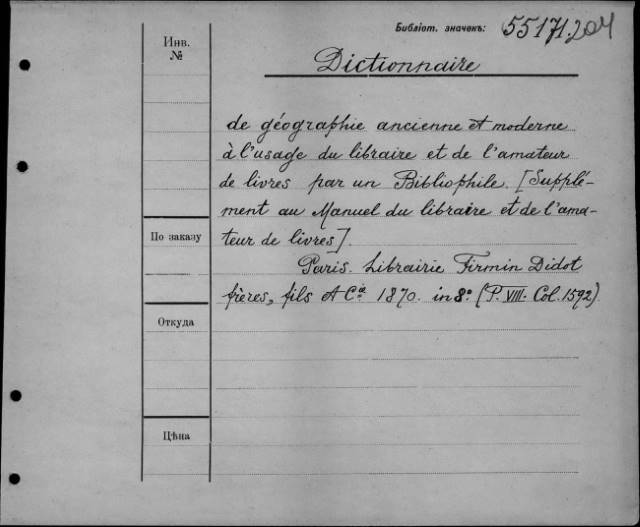 Библіот. значекъ: 55171.204
Инв.
№
Dictionnaire
de géographie ancienne et moderne
à l'usage du libraire et de l'amateur
de livres par un Bibliophile. [Supplé-
ment au Manuel du libraire et de l'ama-
teur de livres].
По заказу
Paris. Librairie Firmin Didot
frères, fils & Cie 1870. in 8º (P. VIII. Col. 1592)
Откуда
Цѣна